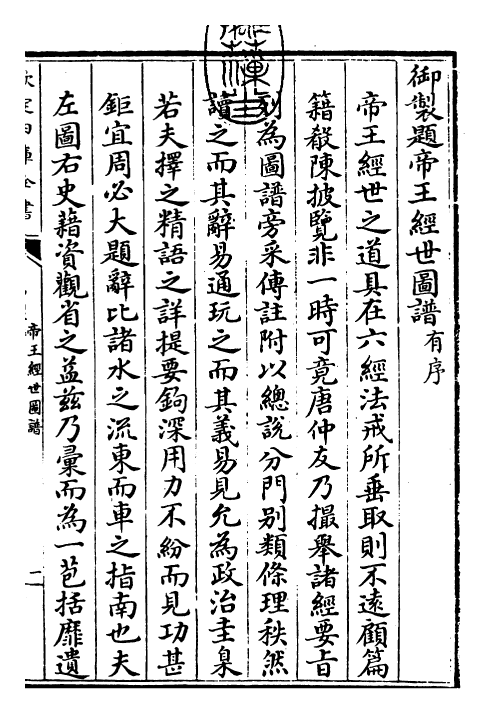 御製題帝王經世圖譜有序
帝王經世之道具在六經法戒所垂取則不遠顧篇
籍殽陳披覽非一時可竟唐仲友乃撮舉諸經要旨
列為圖譜旁采傳註附以總說分門别類條理秩然
讀之而其辭易通玩之而其義易見允為政治圭臬
若夫擇之精語之詳提要鉤深用力不紛而見功甚
鉅宜周必大題辭比諸水之流東而車之指南也夫
左圖右史藉資觀省之益兹乃彙而為一苞括靡遺
欽定四庫全書
帝王經世圖譜
二